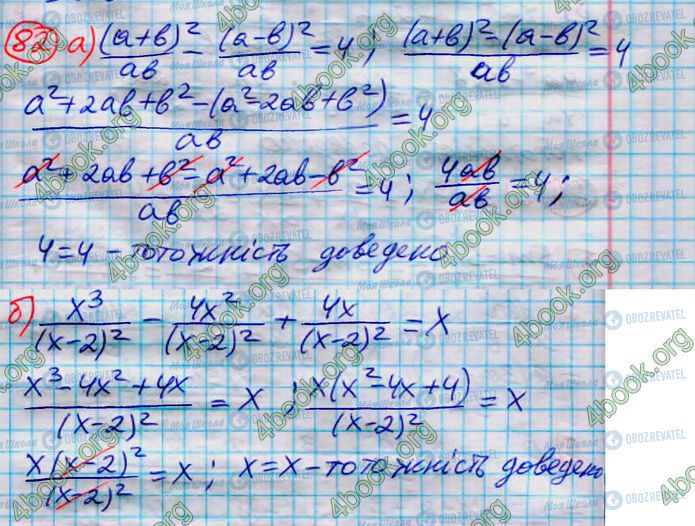 82 а) (a+b)²/ab - (a-b)²/ab = 4 ; (a+b)²-(a-b)²/ab = 4
a²+2ab+b²-(a²-2ab+b²)/ab = 4
a²+2ab+b²-a²+2ab-b²/ab = 4 ; 4ab/ab = 4 ;
4=4 - тотожність доведено
б) x³/(x-2)² - 4x²/(x-2)² + 4x/(x-2)² = x
x³-4x²+4x/(x-2)² = x ; x(x²-4x+4)/(x-2)² = x
x(x-2)²/(x-2)² = x ; x=x - тотожність доведено